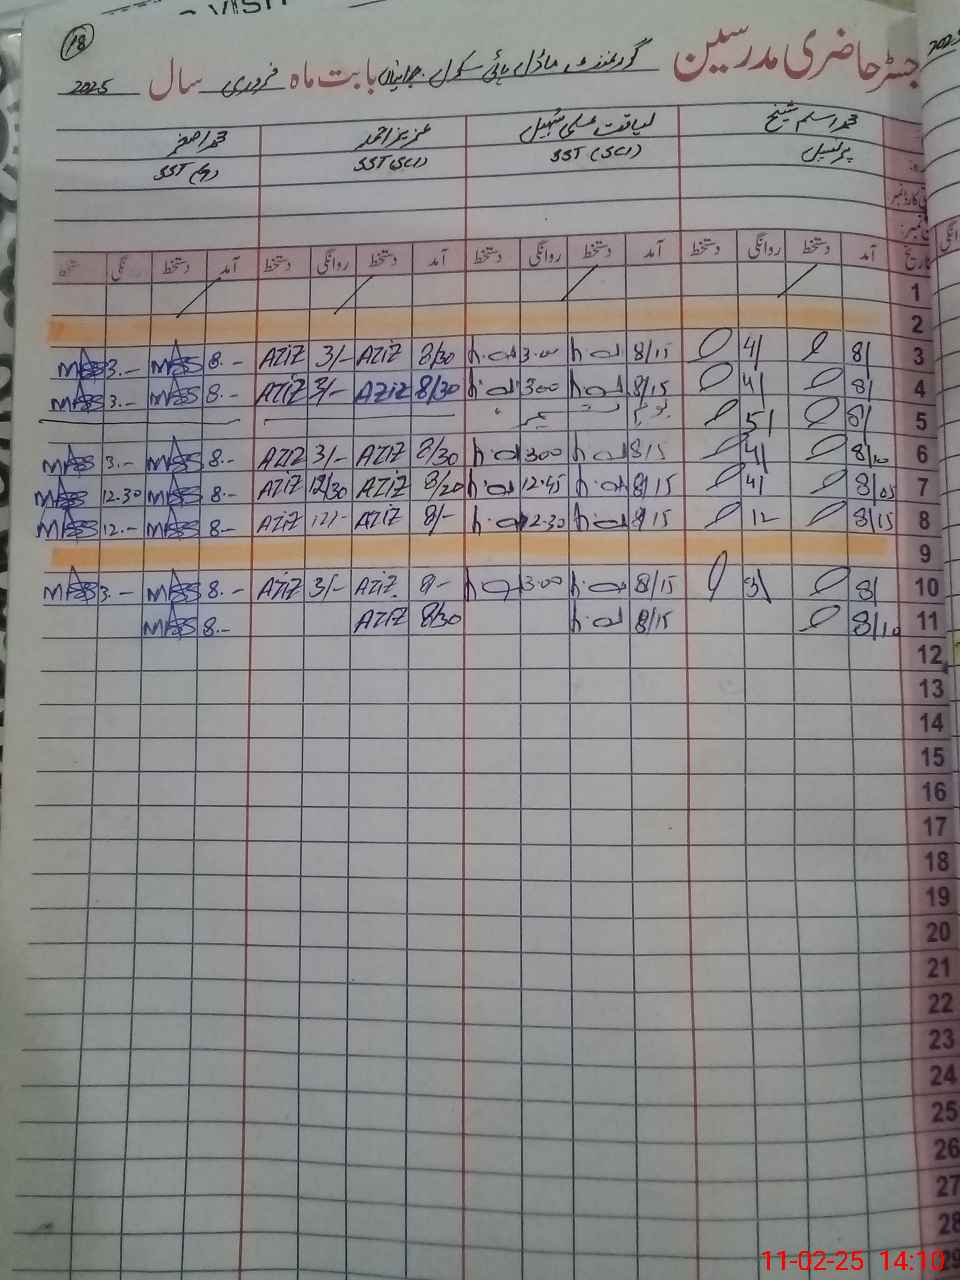 VISIT
18
رجسٹر حاضری مدرسین گورنمنٹ ماڈل ہائی سکول بابت ماہ فروری سال 2025
محمد اسلم شیخ لیاقت علی سہیل عزیز احمد محمد اصغر
پرنسپل SST (Sci) SST (Sci) SST
آمد دستخط روانگی دستخط آمد دستخط روانگی دستخط آمد دستخط روانگی دستخط آمد دستخط
1
2
3 8/ 4/ 8/15 3.00 8/30 AZIZ 3/- AZIZ 8.- MAS 3.- MAS
4 8/ 4/ 8/15 300 8/30 AZIZ 3/- AZIZ 8.- MAS 3.- MAS
5 8/ 5/
6 8/10 4/ 8/15 300 8/30 AZIZ 3/- AZIZ 8.- MAS 3.- MAS
7 8/05 4/ 8/15 12.45 8/20 AZIZ 12/30 AZIZ 8.- MAS 12.30 MAS
8 8/15 12 8/15 12.30 8/- AZIZ 12/- AZIZ 8.- MAS 12.- MAS
9
10 8/ 3/ 8/15 3.00 8- AZIZ 3/- AZIZ 8.- MAS 3.- MAS
11 8/10 8/15 8/30 AZIZ 8.- MAS
12
13
14
15
16
17
18
19
20
21
22
23
24
25
26
27
28
29
11-02-25 14:10